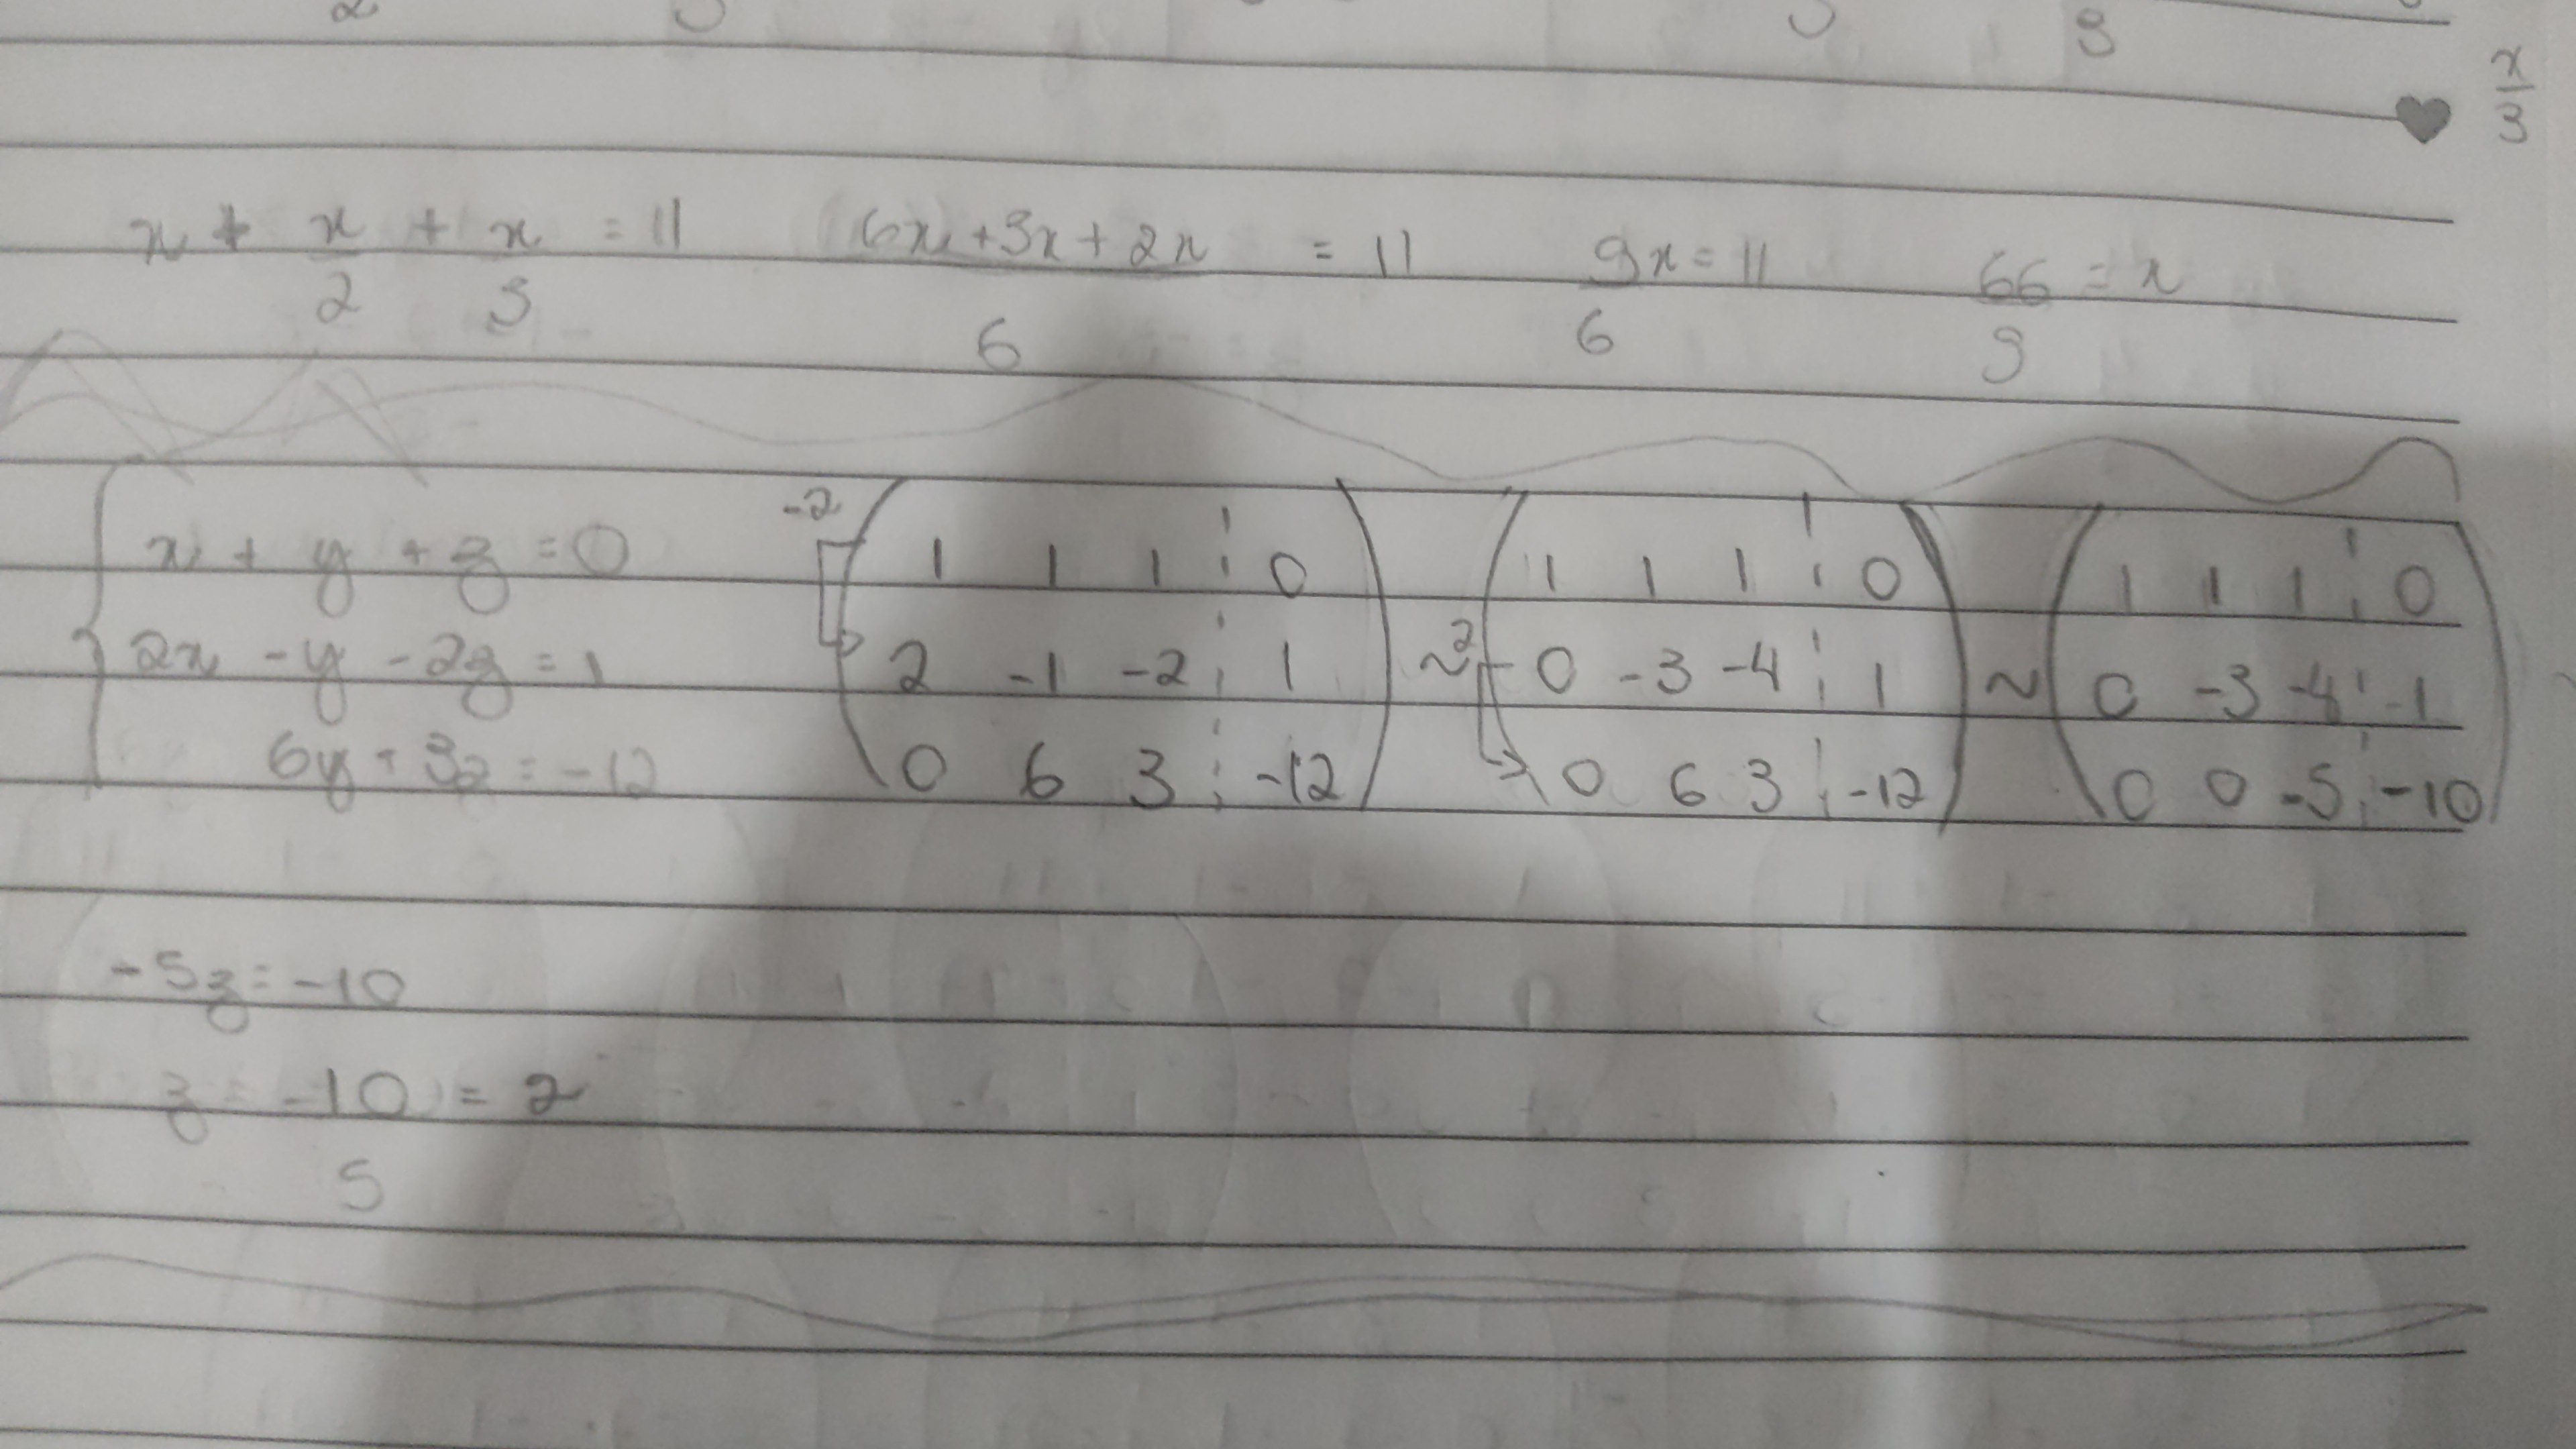 x + x + x = 11 6x + 3x + 2x = 11 9x = 11 66 = x
2 3 6 6 9
x + y + z = 0
2x - y - 2z = 1
6y + 3z = -12
-2
1 1 1 0
2 -1 -2 1
0 6 3 -12
~
2
1 1 1 0
0 -3 -4 1
0 6 3 -12
~
1 1 1 0
0 -3 -4 1
0 0 -5 -10
-5z = -10
z = -10 = 2
5
x
3